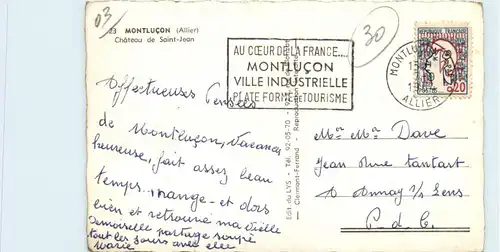 03
30
23 MONTLUÇON (Allier)
Château de Saint-Jean
AU CŒUR DE LA FRANCE....
MONTLUÇON
VILLE INDUSTRIELLE
PLATE FORME DE TOURISME
MONTLUÇON
ALLIER
0,20
Affectueuses Pensées
de Montluçon, Vacances
heureuse, fait assez beau
temps, mange et dors
bien et retrouvé ma vieille
Demoiselle partage soupe
tout les jours avec elle
Marie
Edit. du LYS - Tél. 92-05-70
Clermont-Ferrand - Reproduction
Mr Me Dave
Jean
à Annay s/s Lens
P. d. C.